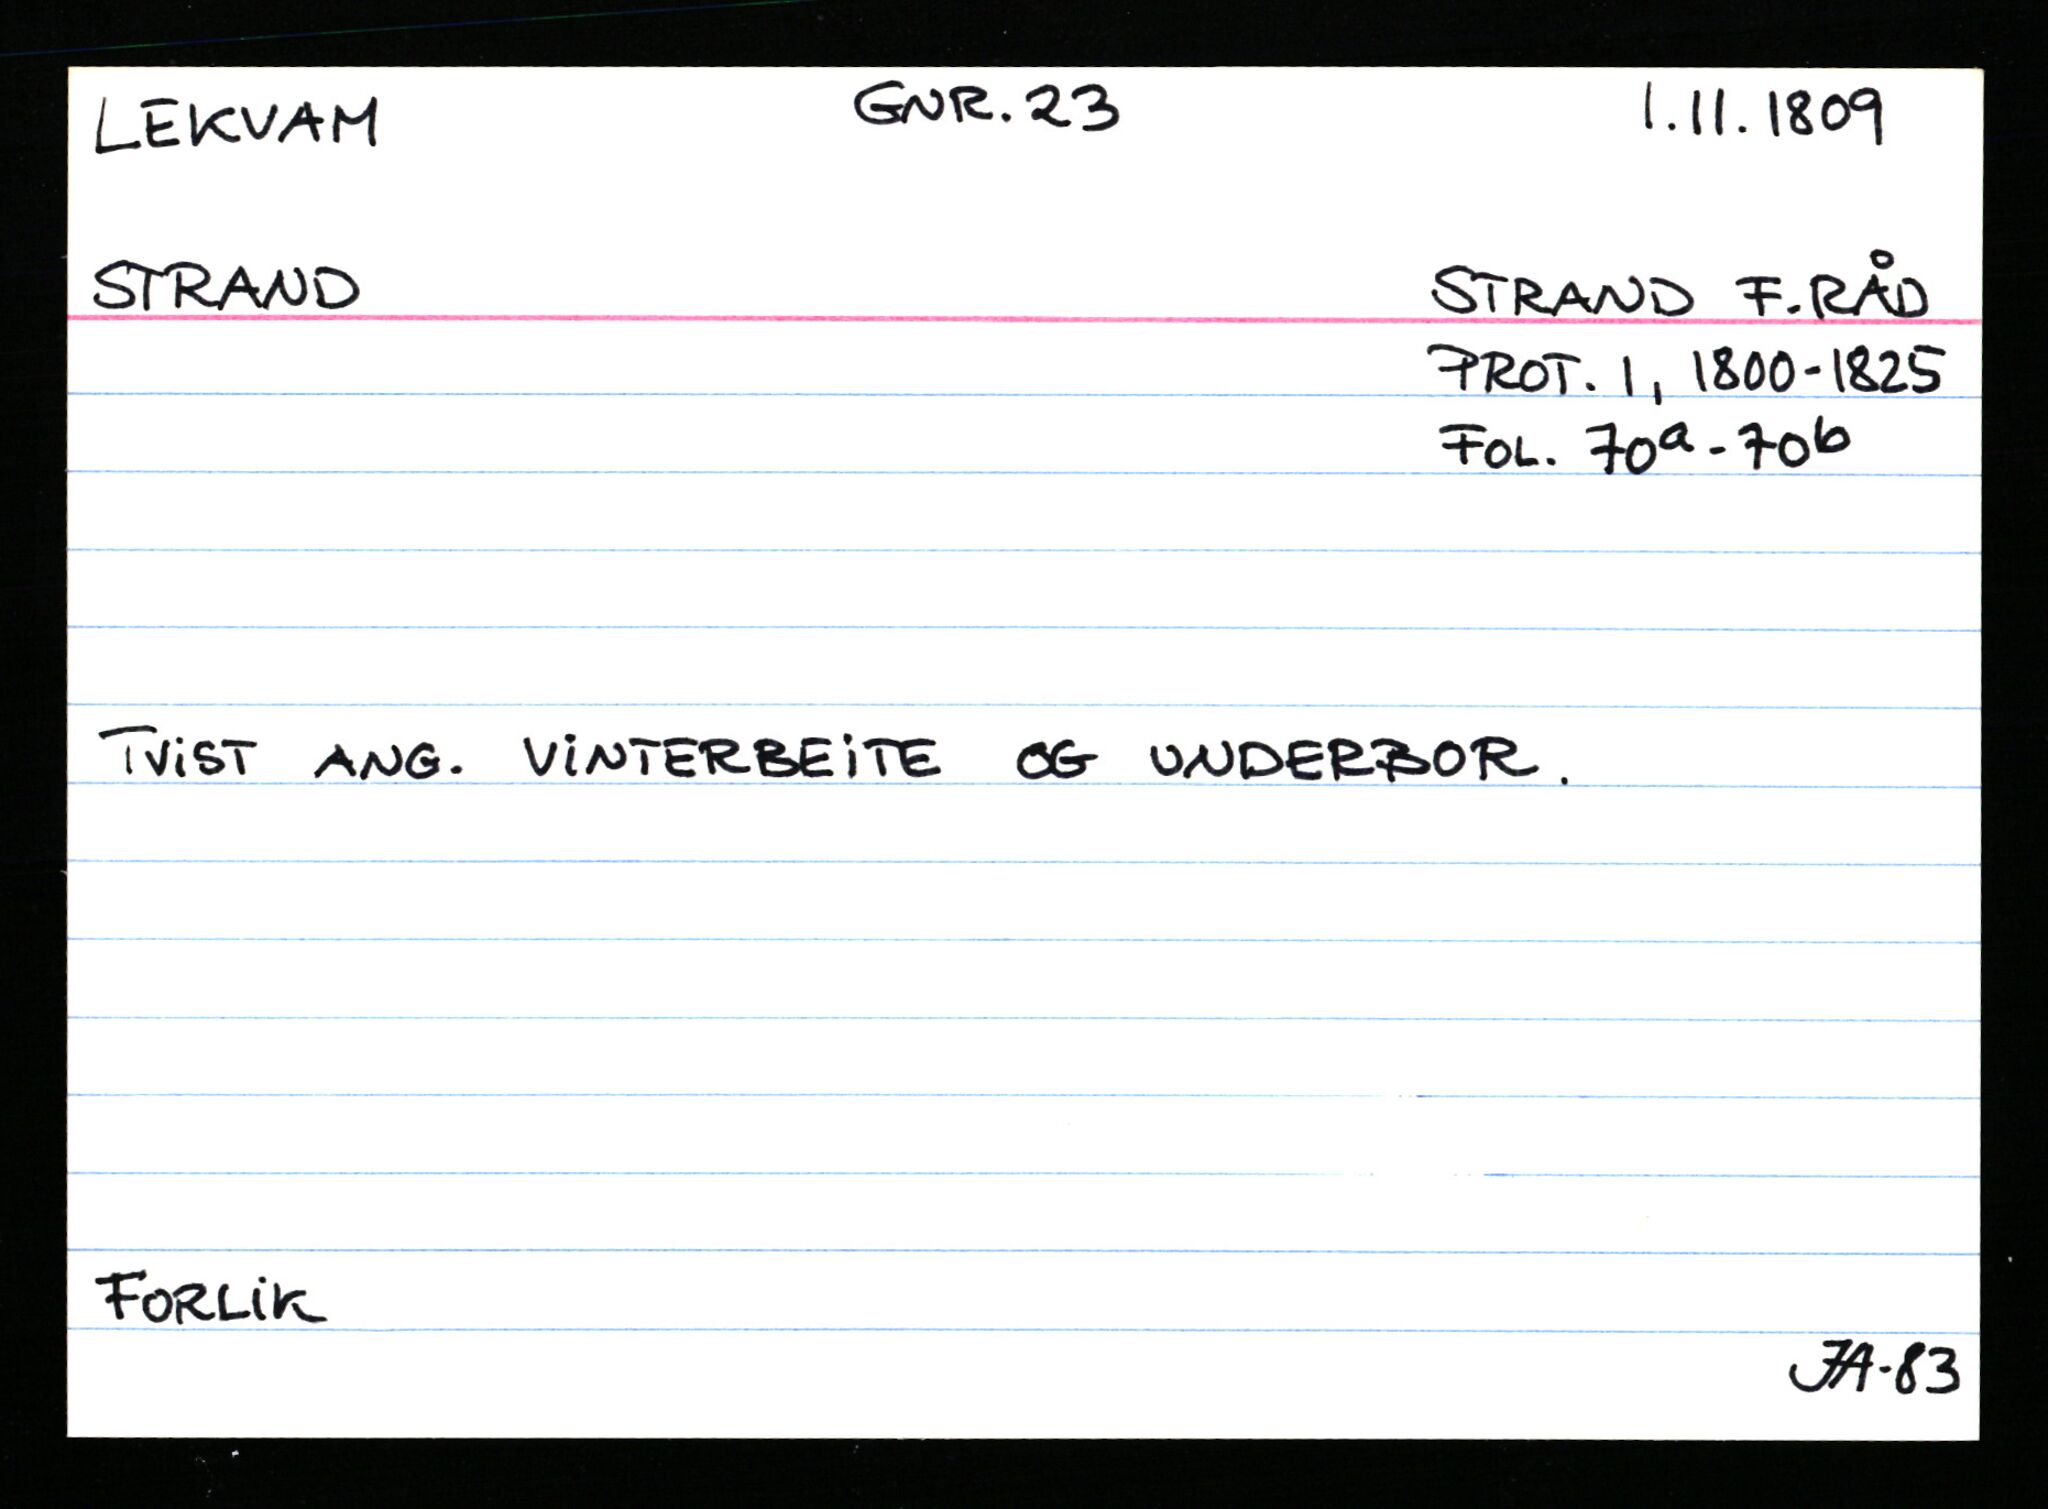 LEKVAM GNR. 23 1.11.1809
STRAND STRAND F.RÅD
PROT. 1, 1800-1825
FOL. 70a - 70b
TViST ANG. ViNTERBEiTE OG UNDERBOR.
FORLiK
JA-83